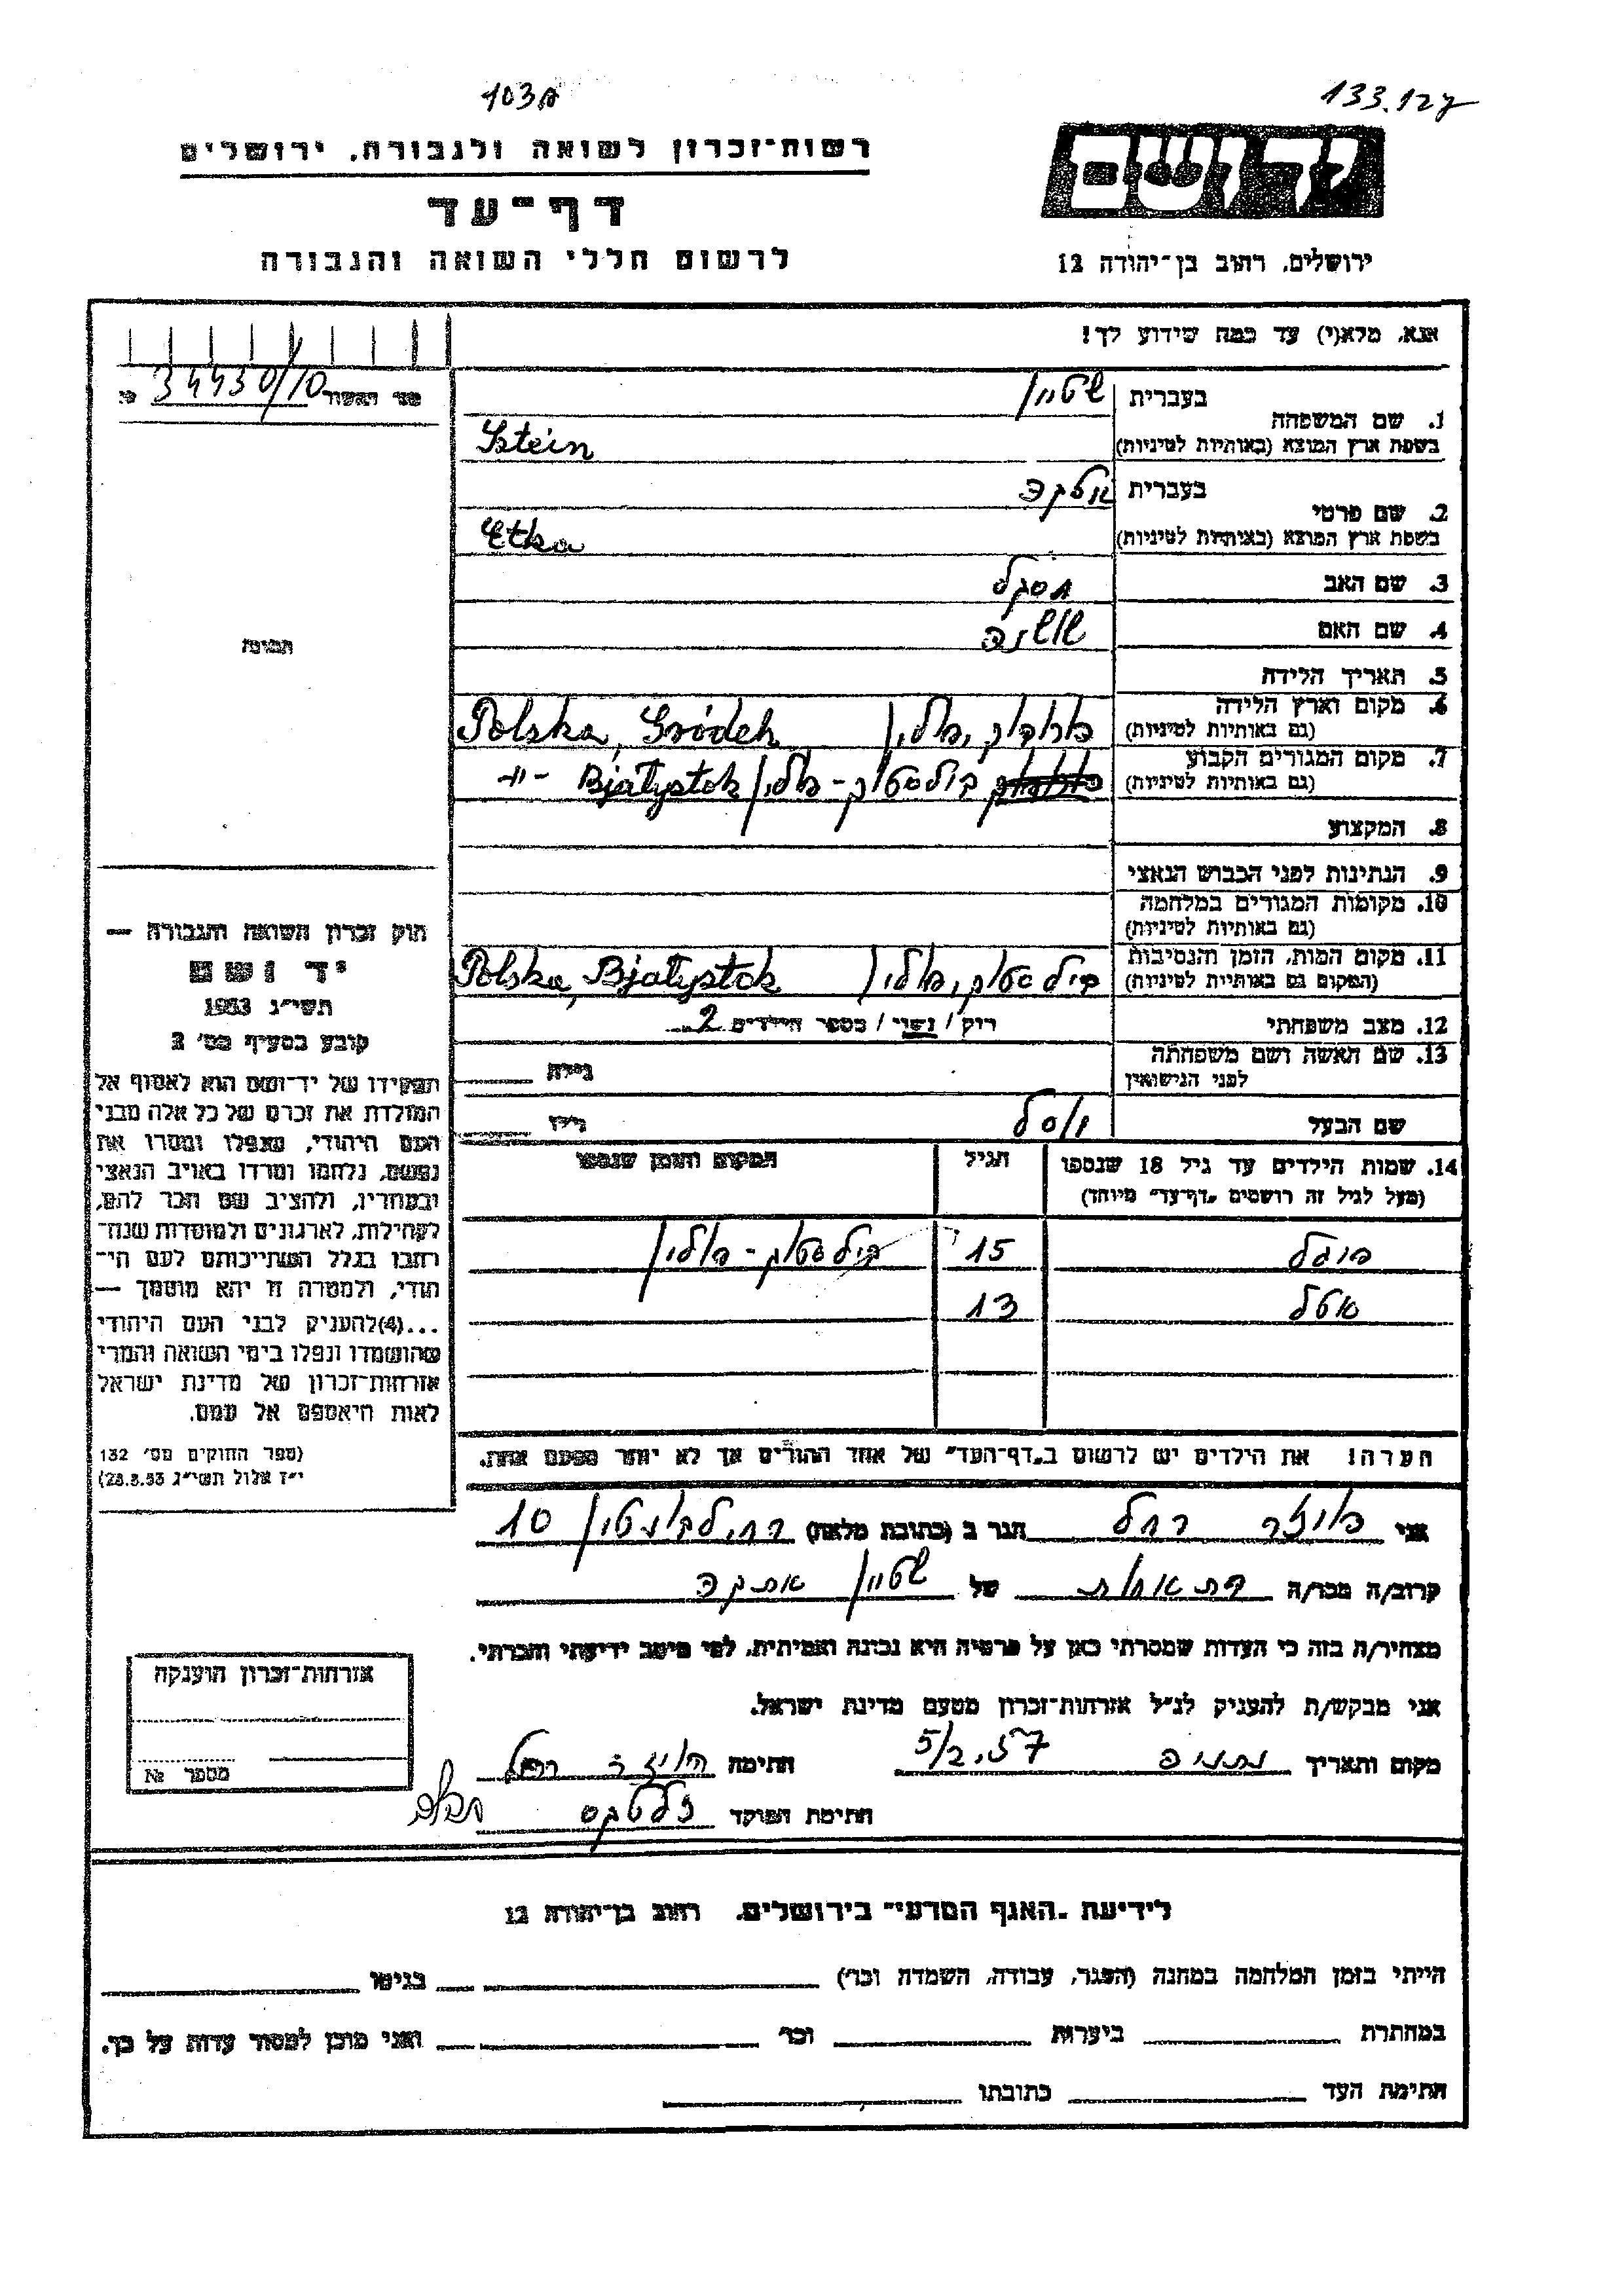 103א 133.12
רשות-זכרון לשואה ולגבורה, ירושלים
יד ושם
דף-עד
לרשום חללי השואה והגבורה
ירושלים, רחוב בן-יהודה 12
אנא, מלא(י) עד כמה שידוע לך!
מס' האשור № 34430/10
1. שם המשפחה בעברית שטיין
בשפת ארץ המוצא (באותיות לטיניות) Sztein
2. שם פרטי בעברית אטקה
בשפת ארץ המוצא (באותיות לטיניות) Etka
3. שם האב
4. שם האם שושנה
תמונה
5. תאריך הלידה
6. מקום וארץ הלידה
(גם באותיות לטיניות) גרודוק, פולין Polska, Gródek
7. מקום המגורים הקבוע
(גם באותיות לטיניות) ביליסטוק - פולין Bjałystok -"-
8. המקצוע
9. הנתינות לפני הכבוש הנאצי
10. מקומות המגורים במלחמה
(גם באותיות לטיניות)
11. מקום המות, הזמן והנסיבות
(המקום גם באותיות לטיניות) ביליסטוק, פולין Polska, Bjałystok
12. מצב משפחתי רוק / נשוי / מספר הילדים 2
13. שם האשה ושם משפחתה
לפני הנישואין גילה
שם הבעל יוסל גילו
חוק זכרון השואה והגבורה —
יד ושם
תשי"ג 1953
קובע בסעיף מס' 2
תפקידו של יד-ושם הוא לאסוף אל
המולדת את זכרם של כל אלה מבני
העם היהודי, שנפלו ומסרו את
נפשם, נלחמו ומרדו באויב הנאצי
ובעוזריו, ולהציב שם וזכר להם,
לקהילות, לארגונים ולמוסדות שנח-
רבו בגלל השתייכותם לעם הי-
הודי, ולמטרה זו יהא מוסמך —
...(4)להעניק לבני העם היהודי
שהושמדו ונפלו בימי השואה והמרי
אזרחות-זכרון של מדינת ישראל
לאות היאספם אל עמם.
(ספר החוקים מס' 132
י"ז אלול תשי"ג 28.8.53)
14. שמות הילדים עד גיל 18 שנספו הגיל המקום והזמן שנספו
(מעל לגיל זה רושמים "דף-עד" מיוחד)
פייגל 15 ביליסטוק - פולין
אטל 13
הערה! את הילדים יש לרשום ב"דף-העד" של אחד ההורים אך לא יותר מפעם אחת.
אני רחל הגר ב (כתובת מלאה) 10
קרוב/ה מכר/ה בת אחות של שטיין אטקה
מצהיר/ה בזה כי העדות שמסרתי כאן על פרטיה היא נכונה ואמיתית, לפי מיטב ידיעתי והכרתי.
אני מבקש/ת להעניק לנ"ל אזרחות-זכרון מטעם מדינת ישראל.
מקום ותאריך נתניה 5/2.57 חתימה רחל
חתימת הפוקד
אזרחות-זכרון הוענקה
מספר №
לידיעת "האגף המדעי" בירושלים, רחוב בן-יהודה 12
הייתי בזמן המלחמה במחנה (הסגר, עבודה, השמדה וכו') בגיטו
במחתרת ביערות וכו' ואני מוכן למסור עדות על כך.
חתימת העד כתובתו